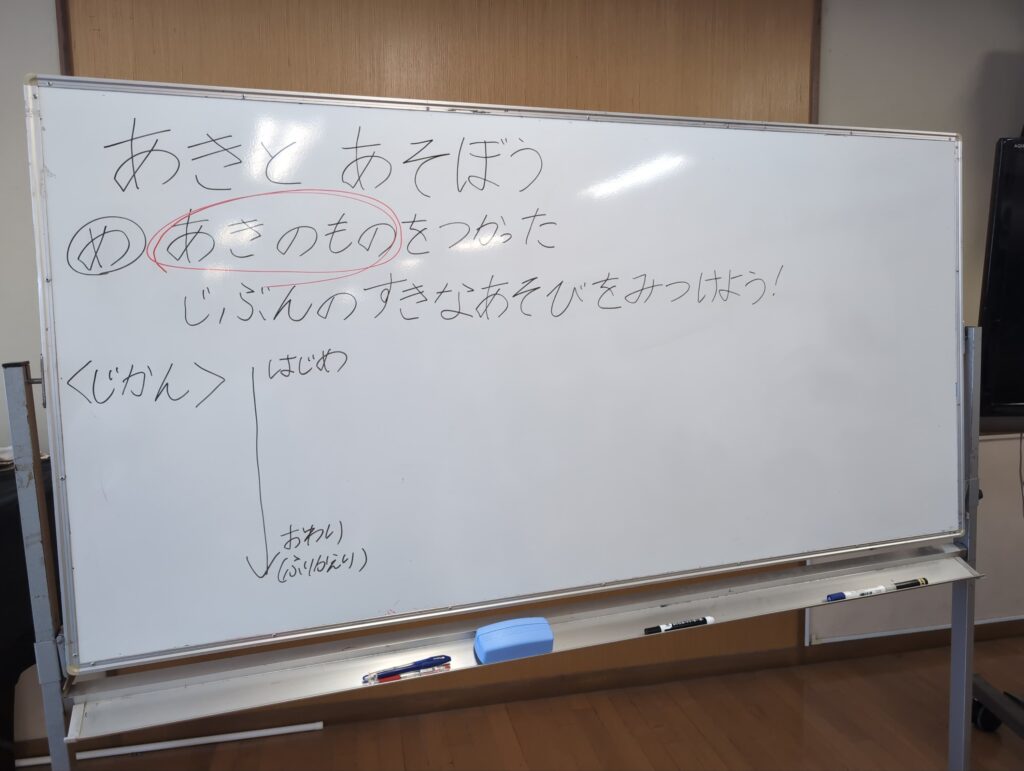 あきと あそぼう
め あきのものをつかった
じぶんのすきなあそびをみつけよう!
<じかん>
はじめ
おわり
(ふりかえり)